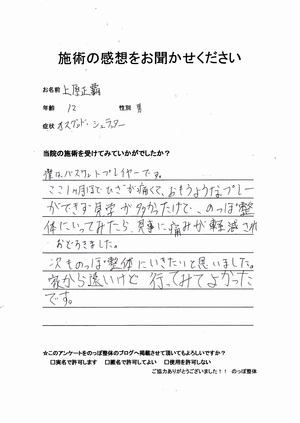 施術の感想をお聞かせください
お名前 上原正覇
年齢 12 性別 男
症状 オスグッド・シュラッター
当院の施術を受けてみていかがでしたか?
僕はバスケットプレイヤーです。
ここ1ヶ月ほどひざが痛くて、おもうようなプレー
ができず見学が多かったけど、のっぽ整
体にいってみたら、見事に痛みが軽減され
おどろきました。
次ものっぽ整体にいきたいと思いました。
家から遠いけど行ってみてよかった
です。
☆このアンケートをのっぽ整体のブログへ掲載させて頂いてもよろしいですか?
□実名で許可します □匿名で許可してよい □使用を許可しない
ご協力ありがとうございました!! のっぽ整体